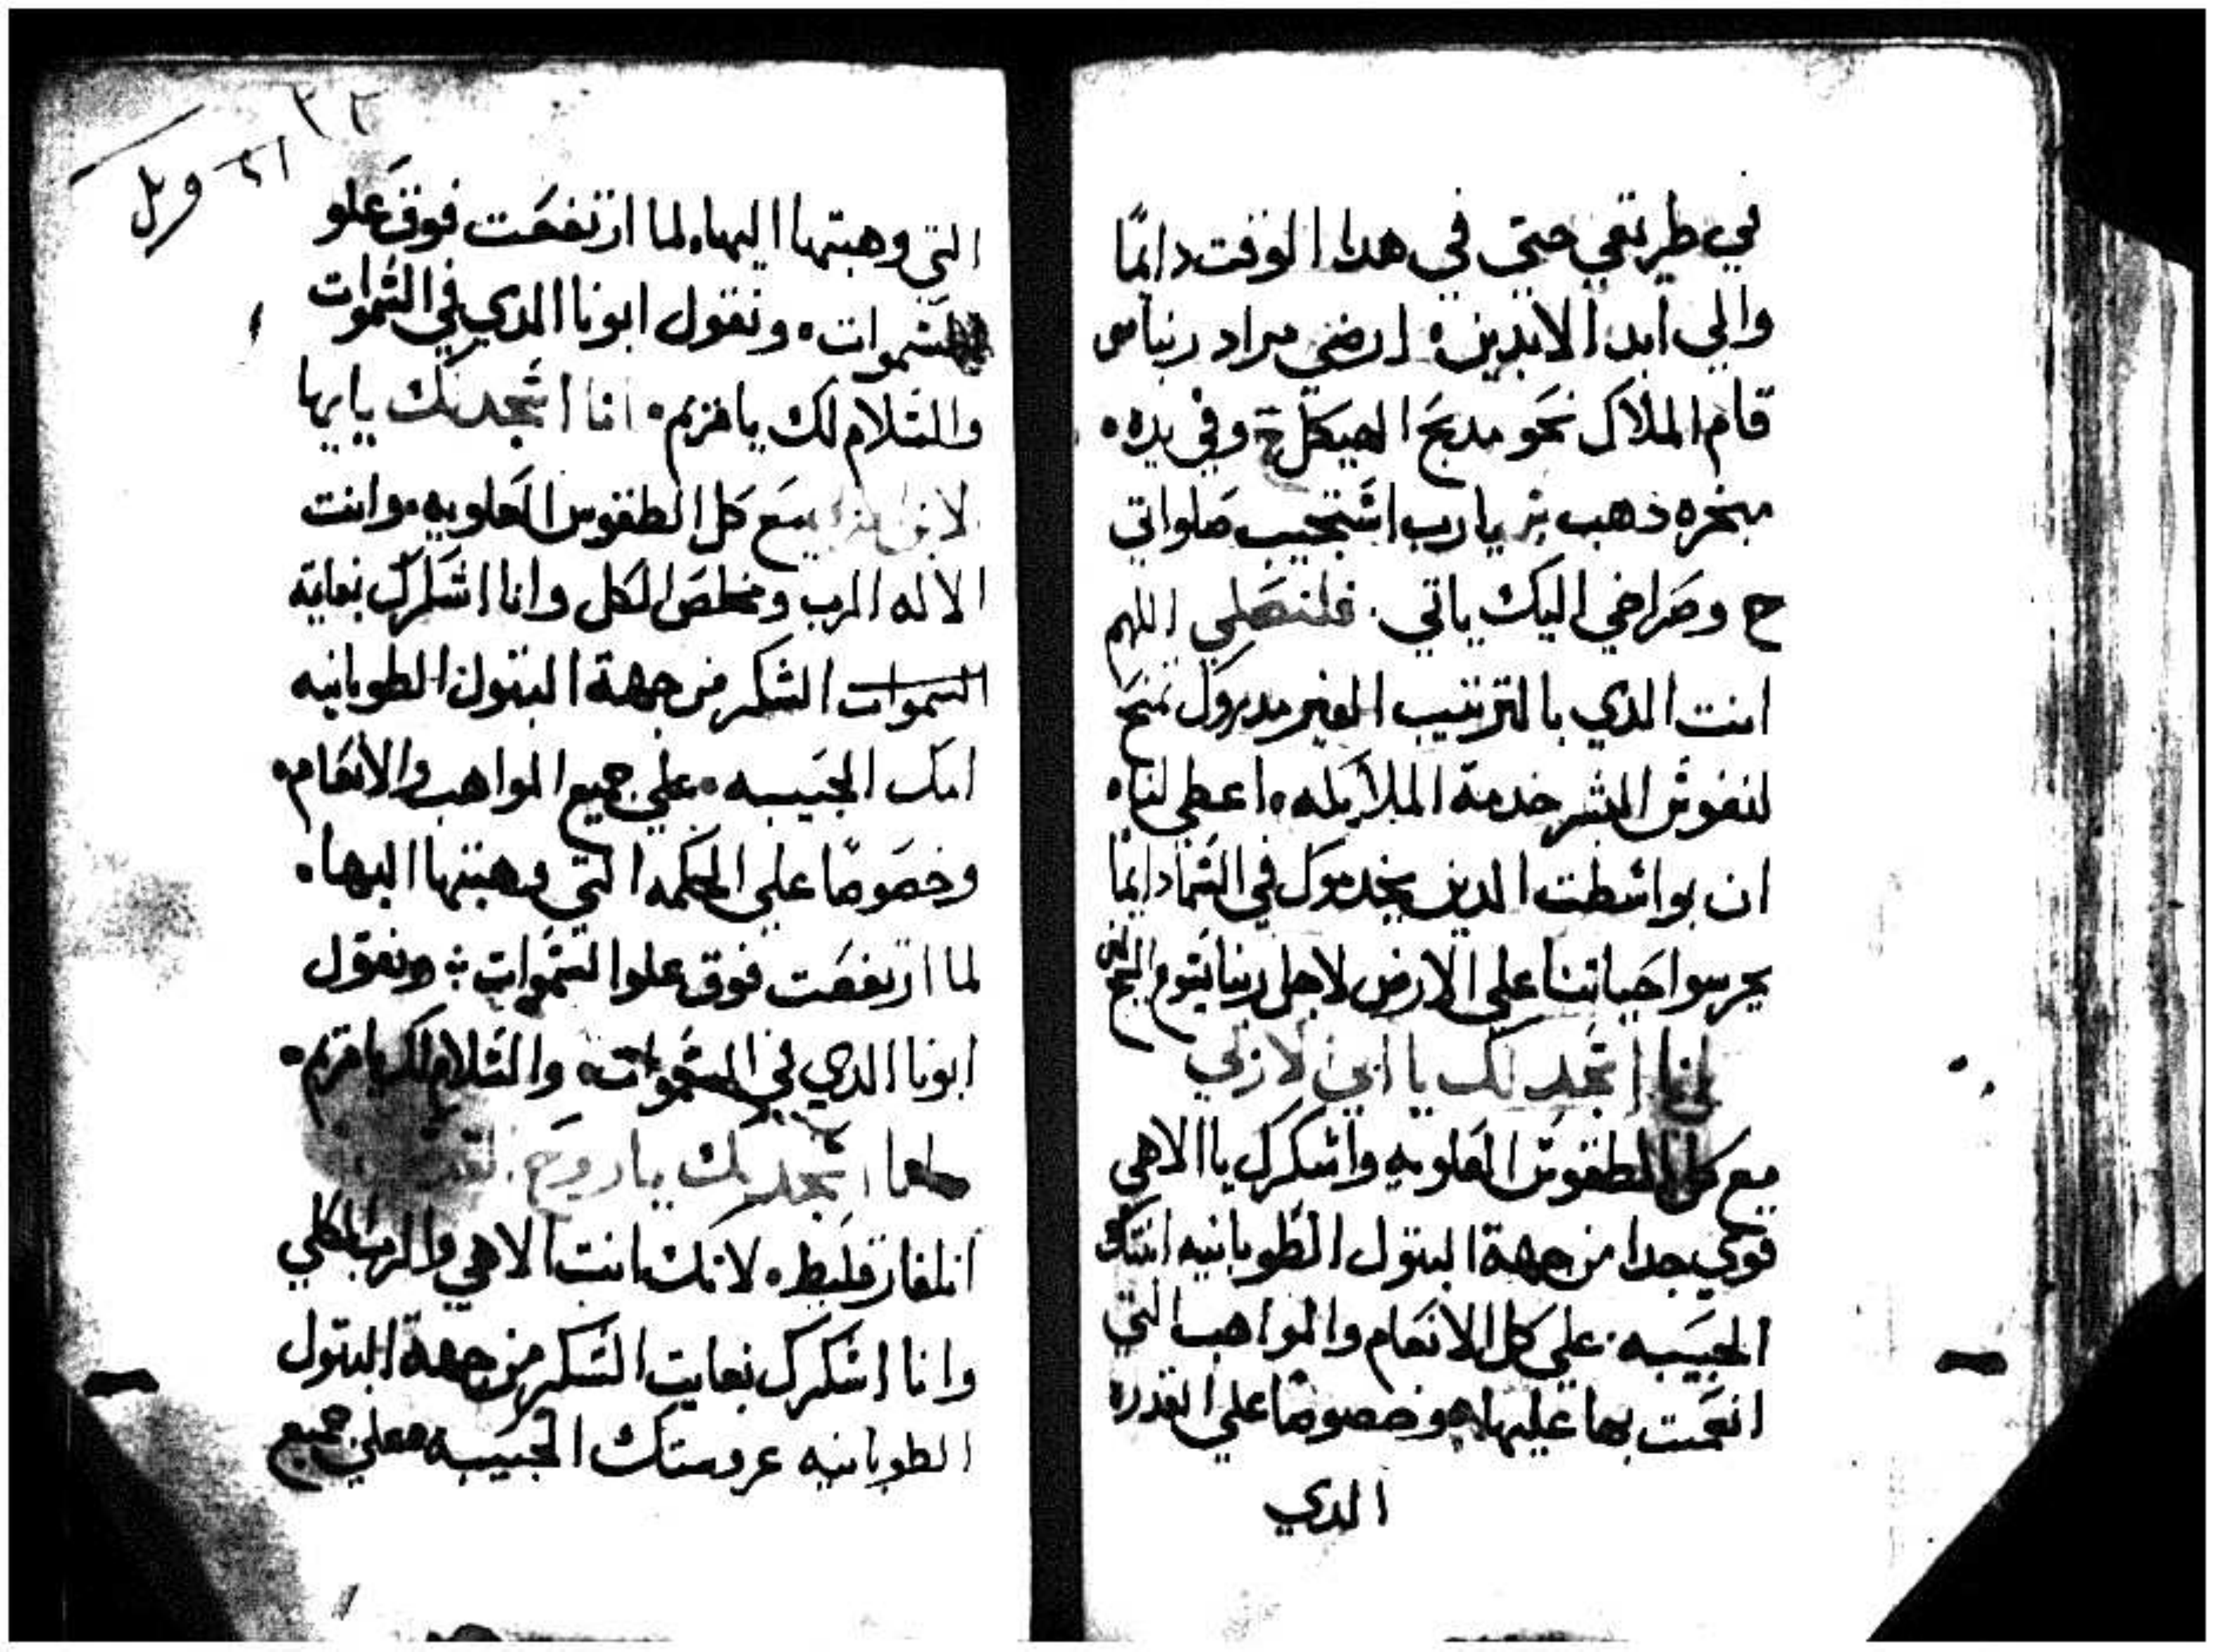 في طريقي حتي في هدا الوقت دايمًا
والي ابد الابدين: ارضي مراد ربنا س
قام الملاك نحو مدبح الهيكل ج وفي يده
مبخره ذهب بز يارب اشتجيب صلواتي
ح وصراخي اليك ياتي. فلنصلي اللهم
انت الدي بالترتيب الغير مدروك تمنح
لنفوش البشر خدمة الملايكه اعطي لنا
ان بواشطت الدين يخدموك في الشما دايمًا
يحرسوا حياتنا على الارض لاجل ربنا يشوع المج
انا اشجد لك يا ابي لازلي
مع كل الطقوش العلويه واشكرك يا الاهي
قوي جدا من جهة البتول الطوبانيه ابنتك
الحبيبه. علي كل الانعام والمواهب التي
انعمت بها عليها وخصوصًا علي القدره
الدي
٣٣
التي وهبتها اليها، لما ارتفعت فوق علو
الشموات، ونقول ابونا الدي في الشموات
والشلام لك يا مريم. انا اشجد لك يا ايها
الابن مع كل الطقوس العلويه وانت
الاله الرب ومخلص الكل وانا اشكرك بغاية
السموات الشكر من جهة البتول الطوبانيه
امك الحبيبه. علي جميع المواهب والانعام.
وخصوصًا علي الحكمه التي وهبتها اليها.
لما ارتفعت فوق علوا الشموات: ونقول
ابونا الدي في الشموات والشلام لك يا مريم.
اشجد لك يا روح القدس
انلفارقليط. لانك انت الاهي والرب الكلي
وانا اشكرك بغايت الشكر من جهة البتول
الطوبانيه عروستك الحبيبه علي جميع